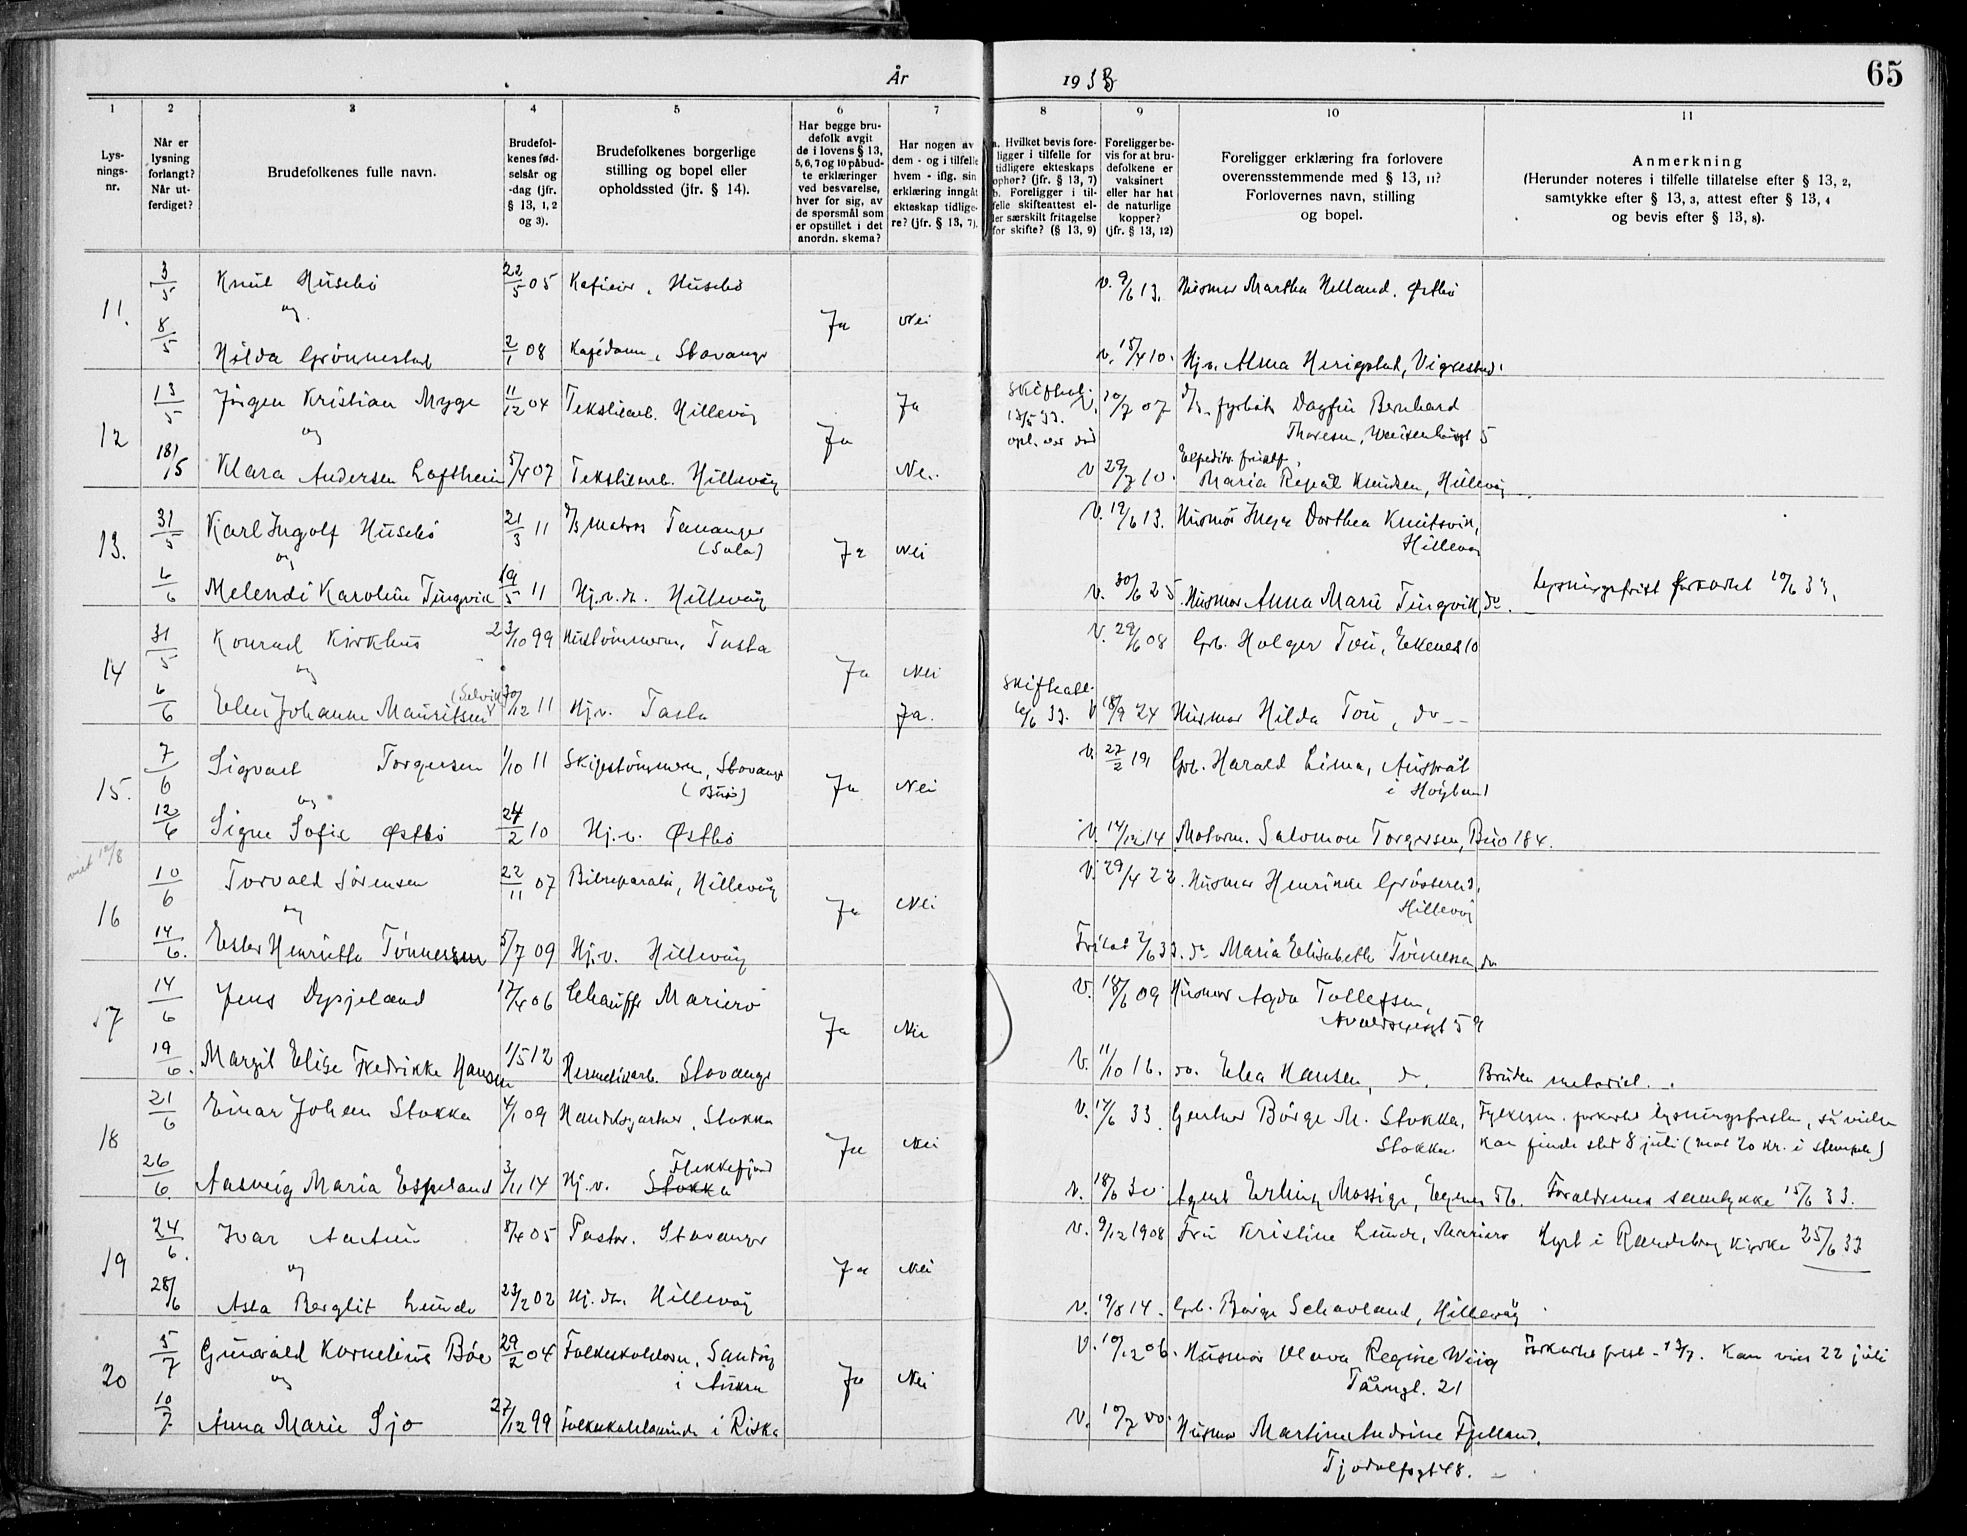 År 1933
65
1 2 3 4 5 6 7 8 9 10 11
Lys-
nings-
nr.
Når er
lysning
forlangt?
Når ut-
ferdiget?
Brudefolkenes fulle navn.
Brudefol-
kenes fød-
selsår og
-dag (jfr.
§ 13, 1, 2
og 3).
Brudefolkenes borgerlige
stilling og bopel eller
opholdssted (jfr. § 14).
Har begge bru-
defolk avgit
de i lovens § 13,
5, 6, 7 og 10 påbud-
te erklæringer
ved besvarelse,
hver for sig, av
de spørsmål som
er opstillet i det
anordn. skema?
Har nogen av
dem - og i tilfelle
hvem - iflg. sin
erklæring inngått
ekteskap tidlige-
re? (jfr. § 13, 7).
a. Hvilket bevis fore-
ligger i tilfelle for
tidligere ekteskaps
ophør? (jfr. § 13, 7)
b. Foreligger i til-
felle skifteattest el-
ler særskilt fritagelse
for skifte? (§ 13, 9)
Foreligger be-
vis for at bru-
defolkene er
vaksinert
eller har hat
de naturlige
kopper?
(jfr. § 13, 12)
Foreligger erklæring fra forlovere
overensstemmende med § 13, 11?
Forlovernes navn, stilling
og bopel.
Anmerkning
(Herunder noteres i tilfelle tillatelse efter § 13, 2,
samtykke efter § 13, 3, attest efter § 13, 4
og bevis efter § 13, 8).
11. 3/5 Knut Husebø 22/5 05 Husebø v. 9/6 13. Husmor Martha Helland. Østbø
og
8/5 Ja Nei
Hilda Grønnestad 2/1 08 Kafédame, Stavanger v. 15/4 10. Hj.v. Alma Herigstad, Vigrestad.
12 13/5 Jørgen Kristian Myge 11/12 04 Tekstilarb. Hillevåg Ja 13/5 33. v. 10/7 07 Dagfin Bernhard
og Ja Thoresen, 5
18/5 Klara Andersen Loftheim 5/4 07 Tekstilarb. Hillevåg Nei v 29/7 10. Maria Knudsen, Hillevåg
13. 31/5 Karl Ingolf Husebø 21/3 11 Matros Tananger v. 19/6 13. Husmor Inga Dorthea Knutsvik,
(Sola) Hillevåg
og Ja Nei
6/6 Melendi Karoline Tingvik 19/5 11 Hj.v.d. Hillevåg v. 30/6 25. Husmor Anna Marie Tingvik, do. Lysningsfrist forkortet 10/6 33.
14 31/5 Konrad Kirkhus 23/10 99 Hustømmerm, Tasta v. 29/6 08 Grb. Holger Tou, Ekenes 10
og Ja Nei
6/6 Elen Johanne Mauritsen (Selvik) 30/12 11 Hj.v. Tasta Ja. Skifteatt. 6/6 33. v 18/9 24 Husmor Hilda Tou, do
15. 7/6 Sigvart Torgersen 1/10 11 Skipstømmerm, Stavanger v. 27/2 19 Grb. Harald Lima,
(Buø) i Høyland
og Ja Nei
12/6 Signe Sofie Østbø 24/2 10 Hj.v. Østbø v. 14/12 14 Motorm. Salomon Torgersen, Buø 184.
viet 12/8
16 10/6 Torvald Sørensen 22/11 07 Bilreparatør, Hillevåg v. 29/4 22. Husmor Henrikke
Hillevåg
og Ja Nei
14/6. Ester Henriette Tønnessen 5/7 09 Hj.v. Hillevåg Fritat 2/6 33. do Maria Elisabeth Tønnessen, do
17 14/6 Jens Dysjeland 17/4 06 Chauffør Mariero v. 18/6 09 Husmor Agda Tollefsen,
Avaldsnesgt 59
Ja Nei
19/6. Margit Elise Fredrikke Hansen 1/5 12 Hermetikkarb. Stavanger v. 11/10 16. do. Elea Hansen, do. Bruden metodist.
18 21/6 Einar Johan Stokka 4/1 09 Handelsgartner, Stokka v. 17/6 33 Gartner Børge M. Stokka, Fylkesm. forkortet lysningsfristen, så vielse
Stokka kan finde sted 8 juli (mot 20 kr. i stempel)
Ja Nei
26/6. Aasveig Maria Espeland 3/11 14 Hj.v. Stokka Flekkefjord v. 18/6 30. Agent Erling Mossige, Egenes 56. Foreldrenes samtykke 15/6 33.
19 24/6. Ivar Aartun 8/4 05 Pastor. Stavanger v. 9/12 1908 Fru Kristine Lunde, Mariero Lyst i Randeberg kirke 25/6 33
og Ja Nei
28/6 Asta Berglit Lunde 23/2 02 Hj.dtr. Hillevåg v. 19/8 14. Grb. Børge Schavland, Hillevåg
20 5/7 Gunvald Kornelius Bøe 29/2 04 Folkeskolelærer, Sandøy v. 10/12 06. Husmor Olava Regine Wiig Forkortet frist 12/7. Kan vies 22 juli
i Aukra Tårngt. 21
og Ja Nei
10/7 Anna Marie Sjo 27/12 99 Folkeskolelærerinde i Riska v. 10/7 00. Husmor Martine Andrine Fjelland.
Tjodolfsgt 48.